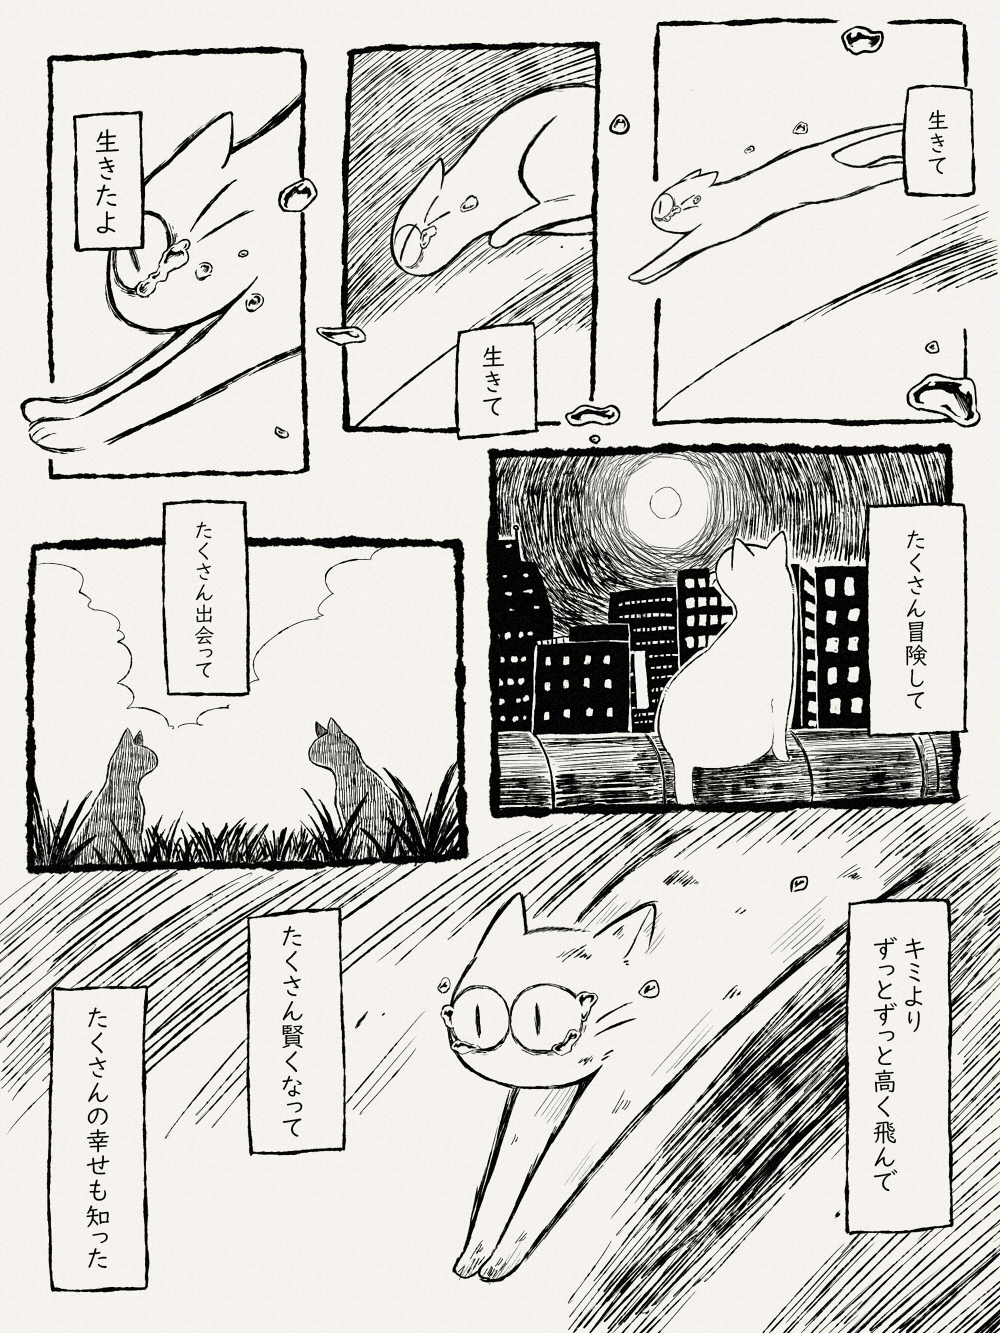 生きて
生きて
生きたよ
たくさん冒険して
たくさん出会って
キミより
ずっとずっと高く飛んで
たくさん賢くなって
たくさんの幸せも知った